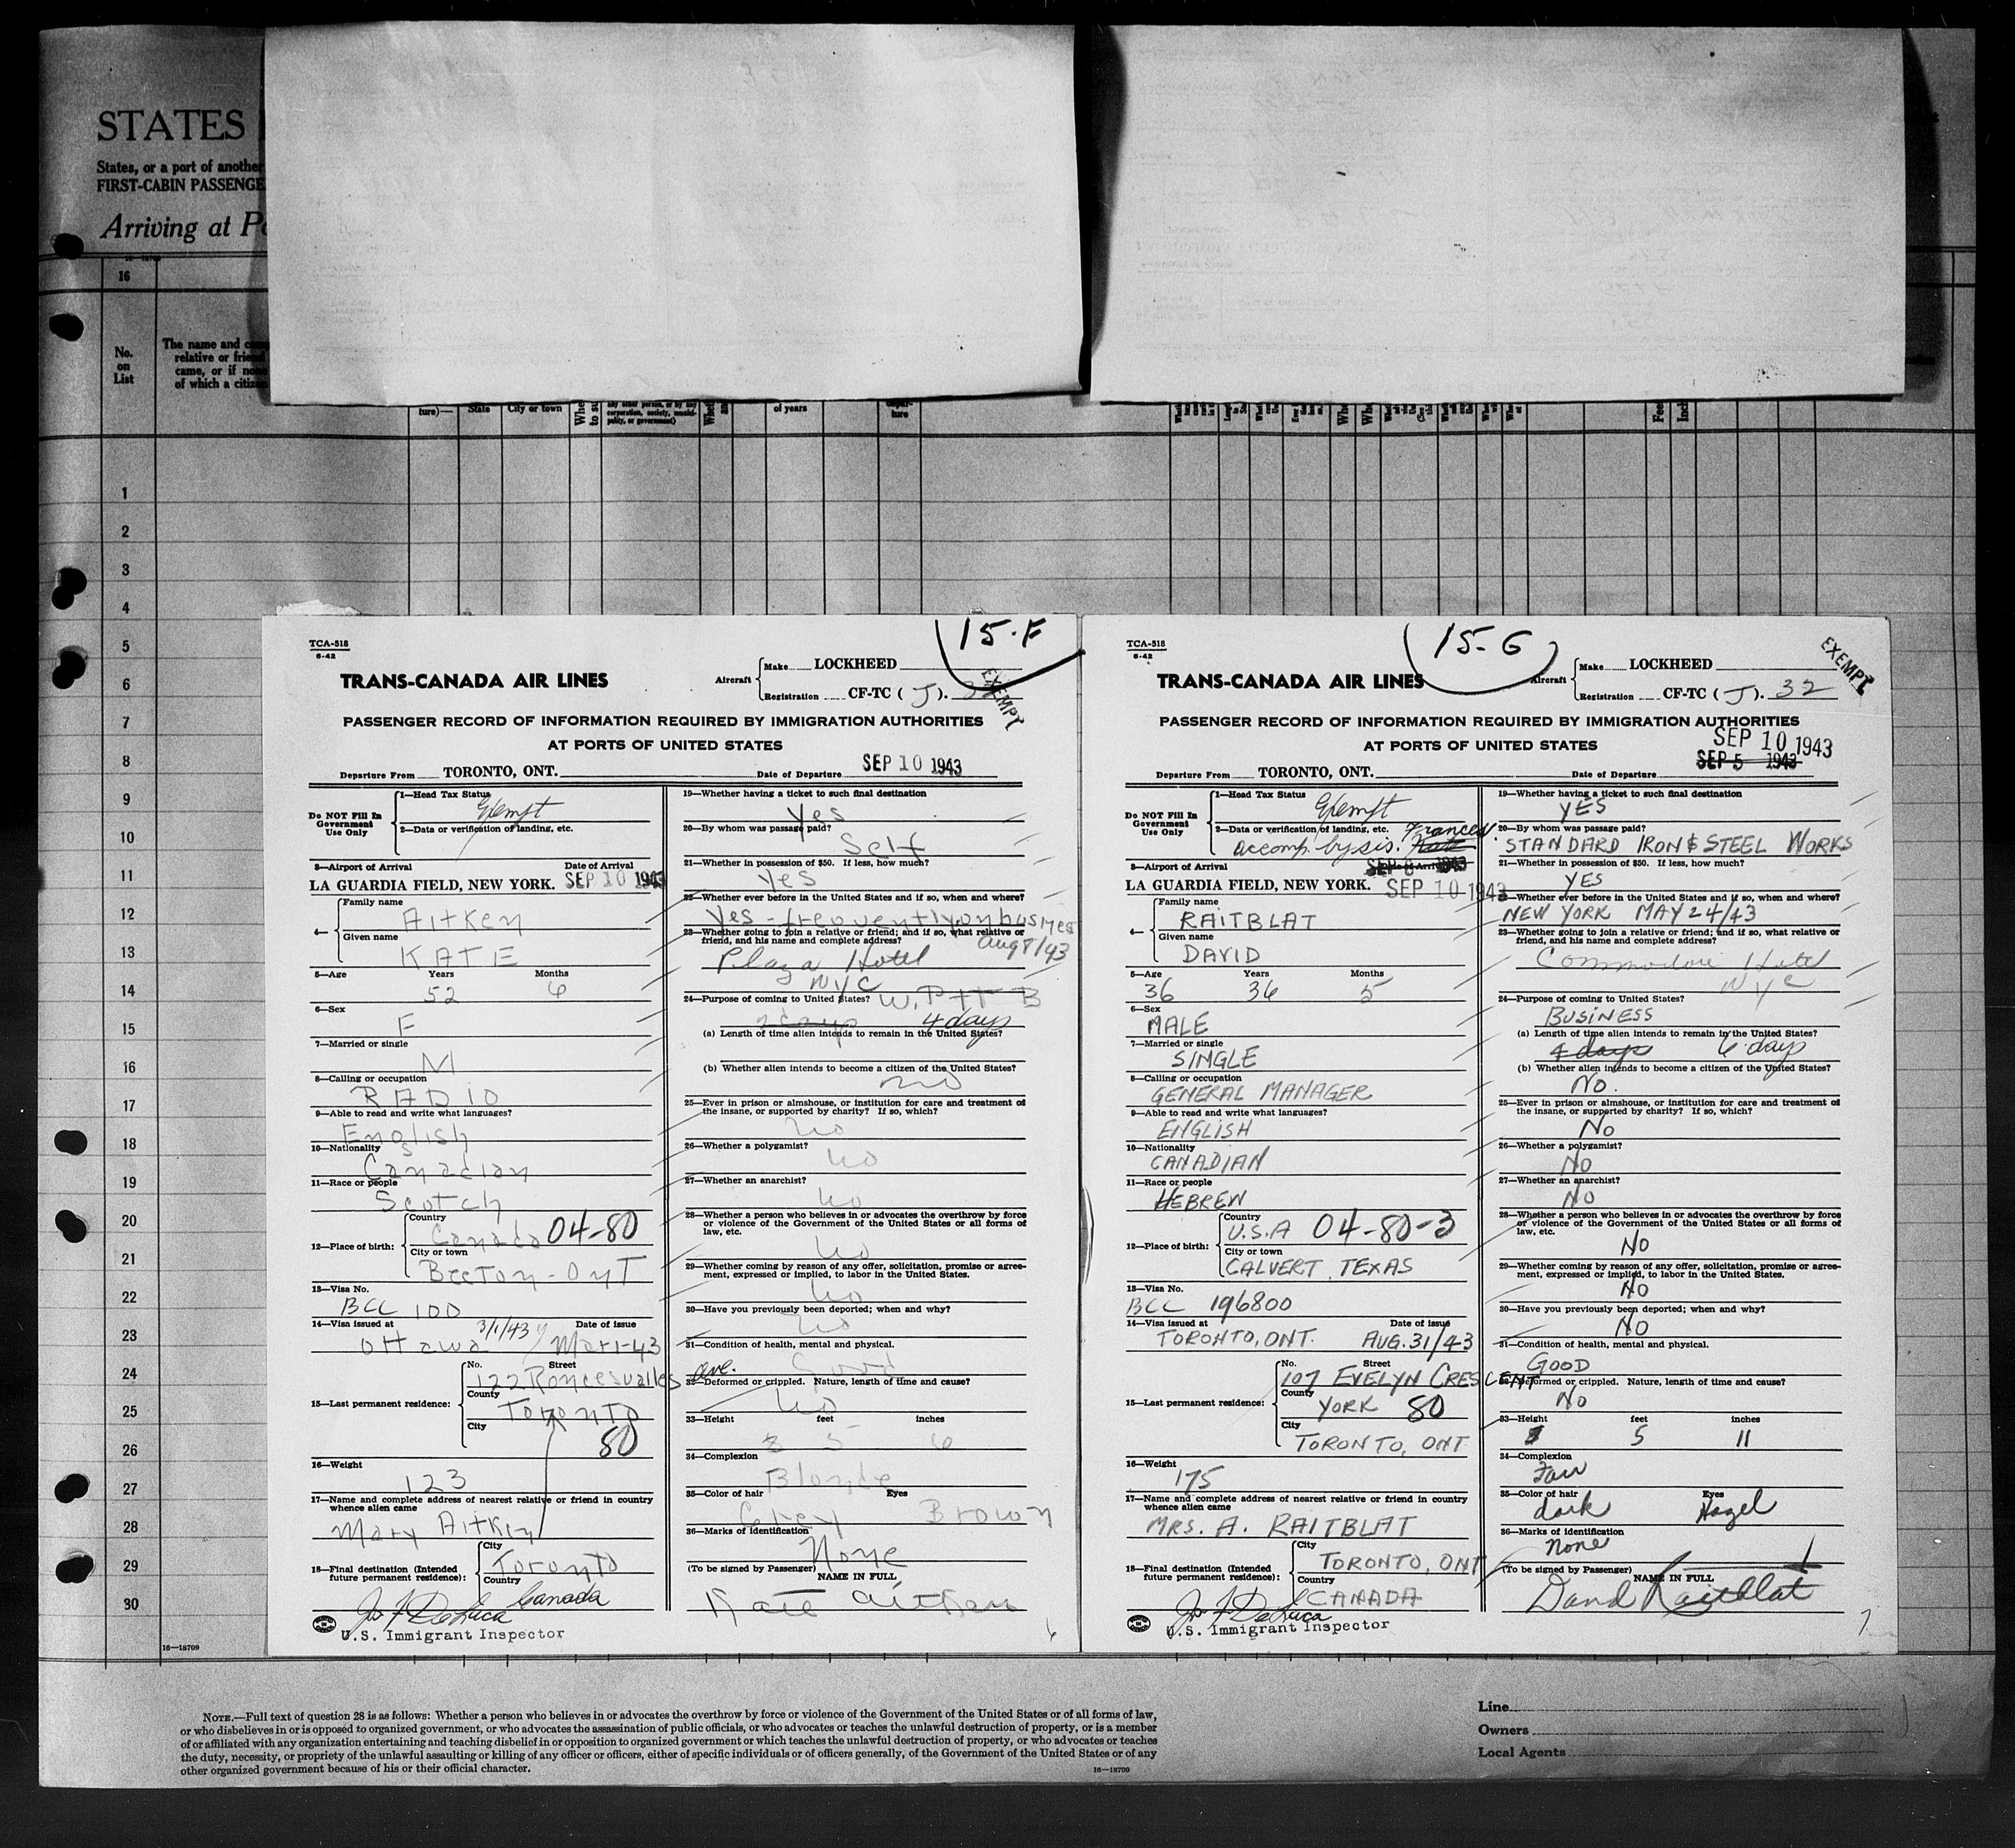 STATES
States, or a port of another
FIRST-CABIN PASSENGE
Arriving at Po
16
No.
on
List
The name and com
relative or frien
came, or if non
of which a citize
ture)—
State
City or town
of years
ture
1
2
3
4
5
6
7
8
9
10
11
12
13
14
15
16
17
18
19
20
21
22
23
24
25
26
27
28
29
30
16—18709
15-F
TCA-518
6-42
TRANS-CANADA AIR LINES
Aircraft
Make LOCKHEED
Registration CF-TC ( J ).
EXEMPT
PASSENGER RECORD OF INFORMATION REQUIRED BY IMMIGRATION AUTHORITIES
AT PORTS OF UNITED STATES
Departure From TORONTO, ONT. Date of Departure SEP 10 1943
Do NOT Fill In
Government
Use Only
1—Head Tax Status
Exempt
2—Data or verification of landing, etc.
3—Airport of Arrival Date of Arrival
LA GUARDIA FIELD, NEW YORK. SEP 10 1943
4—
Family name
Aitken
Given name
KATE
5—Age Years Months
52 6
6—Sex
F
7—Married or single
M
8—Calling or occupation
RADIO
9—Able to read and write what languages?
English
10—Nationality
Canadian
11—Race or people
Scotch
12—Place of birth:
Country
Canada 04-80
City or town
Beeton-Ont
13—Visa No.
BCC 100
14—Visa issued at Date of issue
Ottawa 3/1/43 Mar1-43
15—Last permanent residence:
No. Street
122 Roncesvalles ave.
County
Toronto
City
80
16—Weight
123
17—Name and complete address of nearest relative or friend in country
whence alien came
Mary Aitken
18—Final destination (Intended
future permanent residence):
City
Toronto
Country
Canada
Jos F DeLuca
U.S. Immigrant Inspector
19—Whether having a ticket to such final destination
Yes
20—By whom was passage paid?
Self
21—Whether in possession of $50. If less, how much?
Yes
22—Whether ever before in the United States and if so, when and where?
Yes - frequently on business
Aug 8/43
23—Whether going to join a relative or friend; and if so, what relative or
friend, and his name and complete address?
Plaza Hotel
NYC
24—Purpose of coming to United States? W.P.+T B
2 days 4 days
(a) Length of time alien intends to remain in the United States?
(b) Whether alien intends to become a citizen of the United States?
no
25—Ever in prison or almshouse, or institution for care and treatment of
the insane, or supported by charity? If so, which?
No
26—Whether a polygamist?
No
27—Whether an anarchist?
No
28—Whether a person who believes in or advocates the overthrow by force
or violence of the Government of the United States or all forms of
law, etc.
No
29—Whether coming by reason of any offer, solicitation, promise or agree-
ment, expressed or implied, to labor in the United States.
No
30—Have you previously been deported; when and why?
No
31—Condition of health, mental and physical.
Good
32—Deformed or crippled. Nature, length of time and cause?
No
33—Height feet inches
5 6
34—Complexion
Blonde
35—Color of hair Eyes
Grey Brown
36—Marks of identification
None
(To be signed by Passenger) NAME IN FULL
Kate Aitken
6
15-G
TCA-518
6-42
TRANS-CANADA AIR LINES
Aircraft
Make LOCKHEED
Registration CF-TC ( J ). 32
EXEMPT
PASSENGER RECORD OF INFORMATION REQUIRED BY IMMIGRATION AUTHORITIES
AT PORTS OF UNITED STATES
SEP 10 1943
SEP 5 1943
Departure From TORONTO, ONT. Date of Departure
Do NOT Fill In
Government
Use Only
1—Head Tax Status
Exempt
2—Data or verification of landing, etc. Frances.
accomp. by sis.
3—Airport of Arrival
LA GUARDIA FIELD, NEW YORK. SEP 10 1943
4—
Family name
RAITBLAT
Given name
DAVID
5—Age Years Months
36 36 5
6—Sex
MALE
7—Married or single
SINGLE
8—Calling or occupation
GENERAL MANAGER
9—Able to read and write what languages?
ENGLISH
10—Nationality
CANADIAN
11—Race or people
HEBREW
12—Place of birth:
Country
U.S.A 04-80-3
City or town
CALVERT, TEXAS
13—Visa No.
BCC 196800
14—Visa issued at Date of issue
TORONTO, ONT. AUG. 31/43
15—Last permanent residence:
No. Street
107 EVELYN CRESCENT
County
YORK 80
City
TORONTO, ONT
16—Weight
175
17—Name and complete address of nearest relative or friend in country
whence alien came
MRS. A. RAITBLAT
18—Final destination (Intended
future permanent residence):
City
TORONTO, ONT
Country
CANADA
Jos F DeLuca
U.S. Immigrant Inspector
19—Whether having a ticket to such final destination
YES
20—By whom was passage paid?
STANDARD IRON & STEEL WORKS
21—Whether in possession of $50. If less, how much?
YES
22—Whether ever before in the United States and if so, when and where?
NEW YORK MAY 24/43
23—Whether going to join a relative or friend; and if so, what relative or
friend, and his name and complete address?
Commodore Hotel
NYC
24—Purpose of coming to United States?
BUSINESS
(a) Length of time alien intends to remain in the United States?
4 days 6 days
(b) Whether alien intends to become a citizen of the United States?
No.
25—Ever in prison or almshouse, or institution for care and treatment of
the insane, or supported by charity? If so, which?
No
26—Whether a polygamist?
No
27—Whether an anarchist?
No
28—Whether a person who believes in or advocates the overthrow by force
or violence of the Government of the United States or all forms of
law, etc.
No
29—Whether coming by reason of any offer, solicitation, promise or agree-
ment, expressed or implied, to labor in the United States.
No
30—Have you previously been deported; when and why?
No
31—Condition of health, mental and physical.
GOOD
32—Deformed or crippled. Nature, length of time and cause?
No
33—Height feet inches
5 11
34—Complexion
Fair
35—Color of hair Eyes
dark Hazel
36—Marks of identification
none
(To be signed by Passenger) NAME IN FULL
David Raitblat
7
NOTE.—Full text of question 28 is as follows: Whether a person who believes in or advocates the overthrow by force or violence of the Government of the United States or of all forms of law,
or who disbelieves in or is opposed to organized government, or who advocates the assassination of public officials, or who advocates or teaches the unlawful destruction of property, or is a member
of or affiliated with any organization entertaining and teaching disbelief in or opposition to organized government or which teaches the unlawful destruction of property, or who advocates or teaches
the duty, necessity, or propriety of the unlawful assaulting or killing of any officer or officers, either of specific individuals or of officers generally, of the Government of the United States or of any
other organized government because of his or their official character.
16—18709
Line
Owners
Local Agents